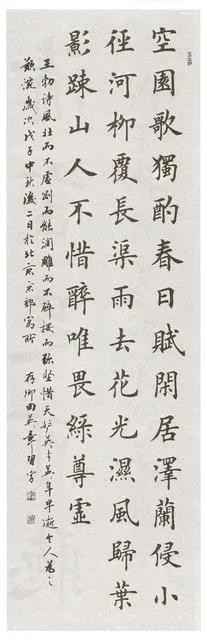 空園歌獨酌春日賦閑居澤蘭侵小
徑河柳覆長渠雨去花光濕風歸葉
影踈山人不惜醉唯畏綠尊虛
王勃詩風壯而不虛剛而能潤雕而不碎按而弥堅惜天妒英才英年早逝令人為之
歎惋歲次戊子中秋後二日於北京京郊寓所 存卿田英章習字